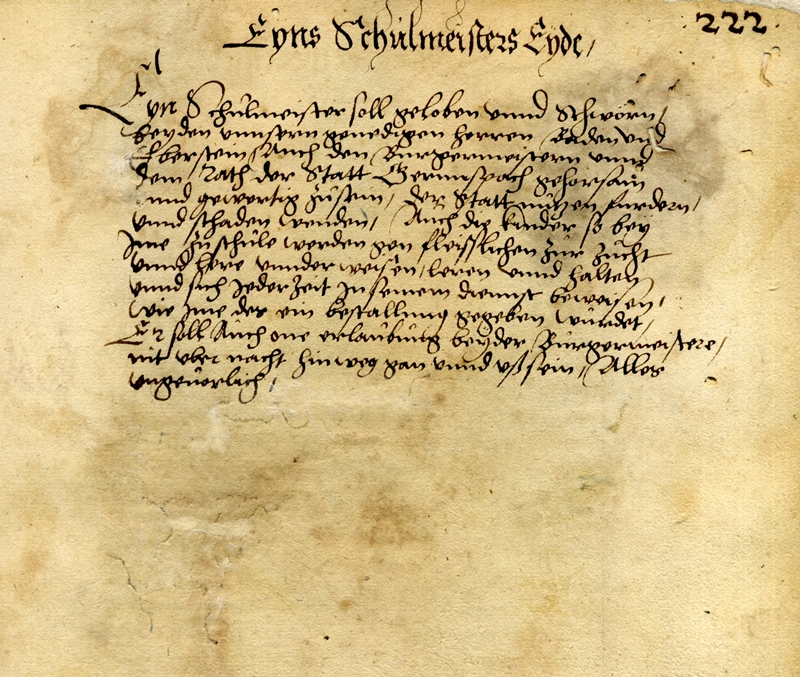 222
Eyns Schulmeisters Eyde,
Eyn Schulmeister soll geloben vnnd Schwörn,
beyden vnnsern genedigen herren Baden vnd
Eberstein, Auch den Burgermeistern vnnd
dem Rath der Statt Gernnspach gehorsam
vnnd gewertig zusein, der Statt nutzen furdern,
vnnd schaden wenden, Auch die kinder so bey
Ime zu schule werden gen fleisslichen zur zucht
vnnd lere vnnderweisen, leren vnnd halten
vnnd sich Jederzeit In seinem diennst beweisen,
wie Ime der ein bestallung gegeben würdet,
Er soll Auch one erlaubung beyder Burgermeistere,
nit vber nacht hinweg gan vnnd vß sein, Alles
vngeuerlich,